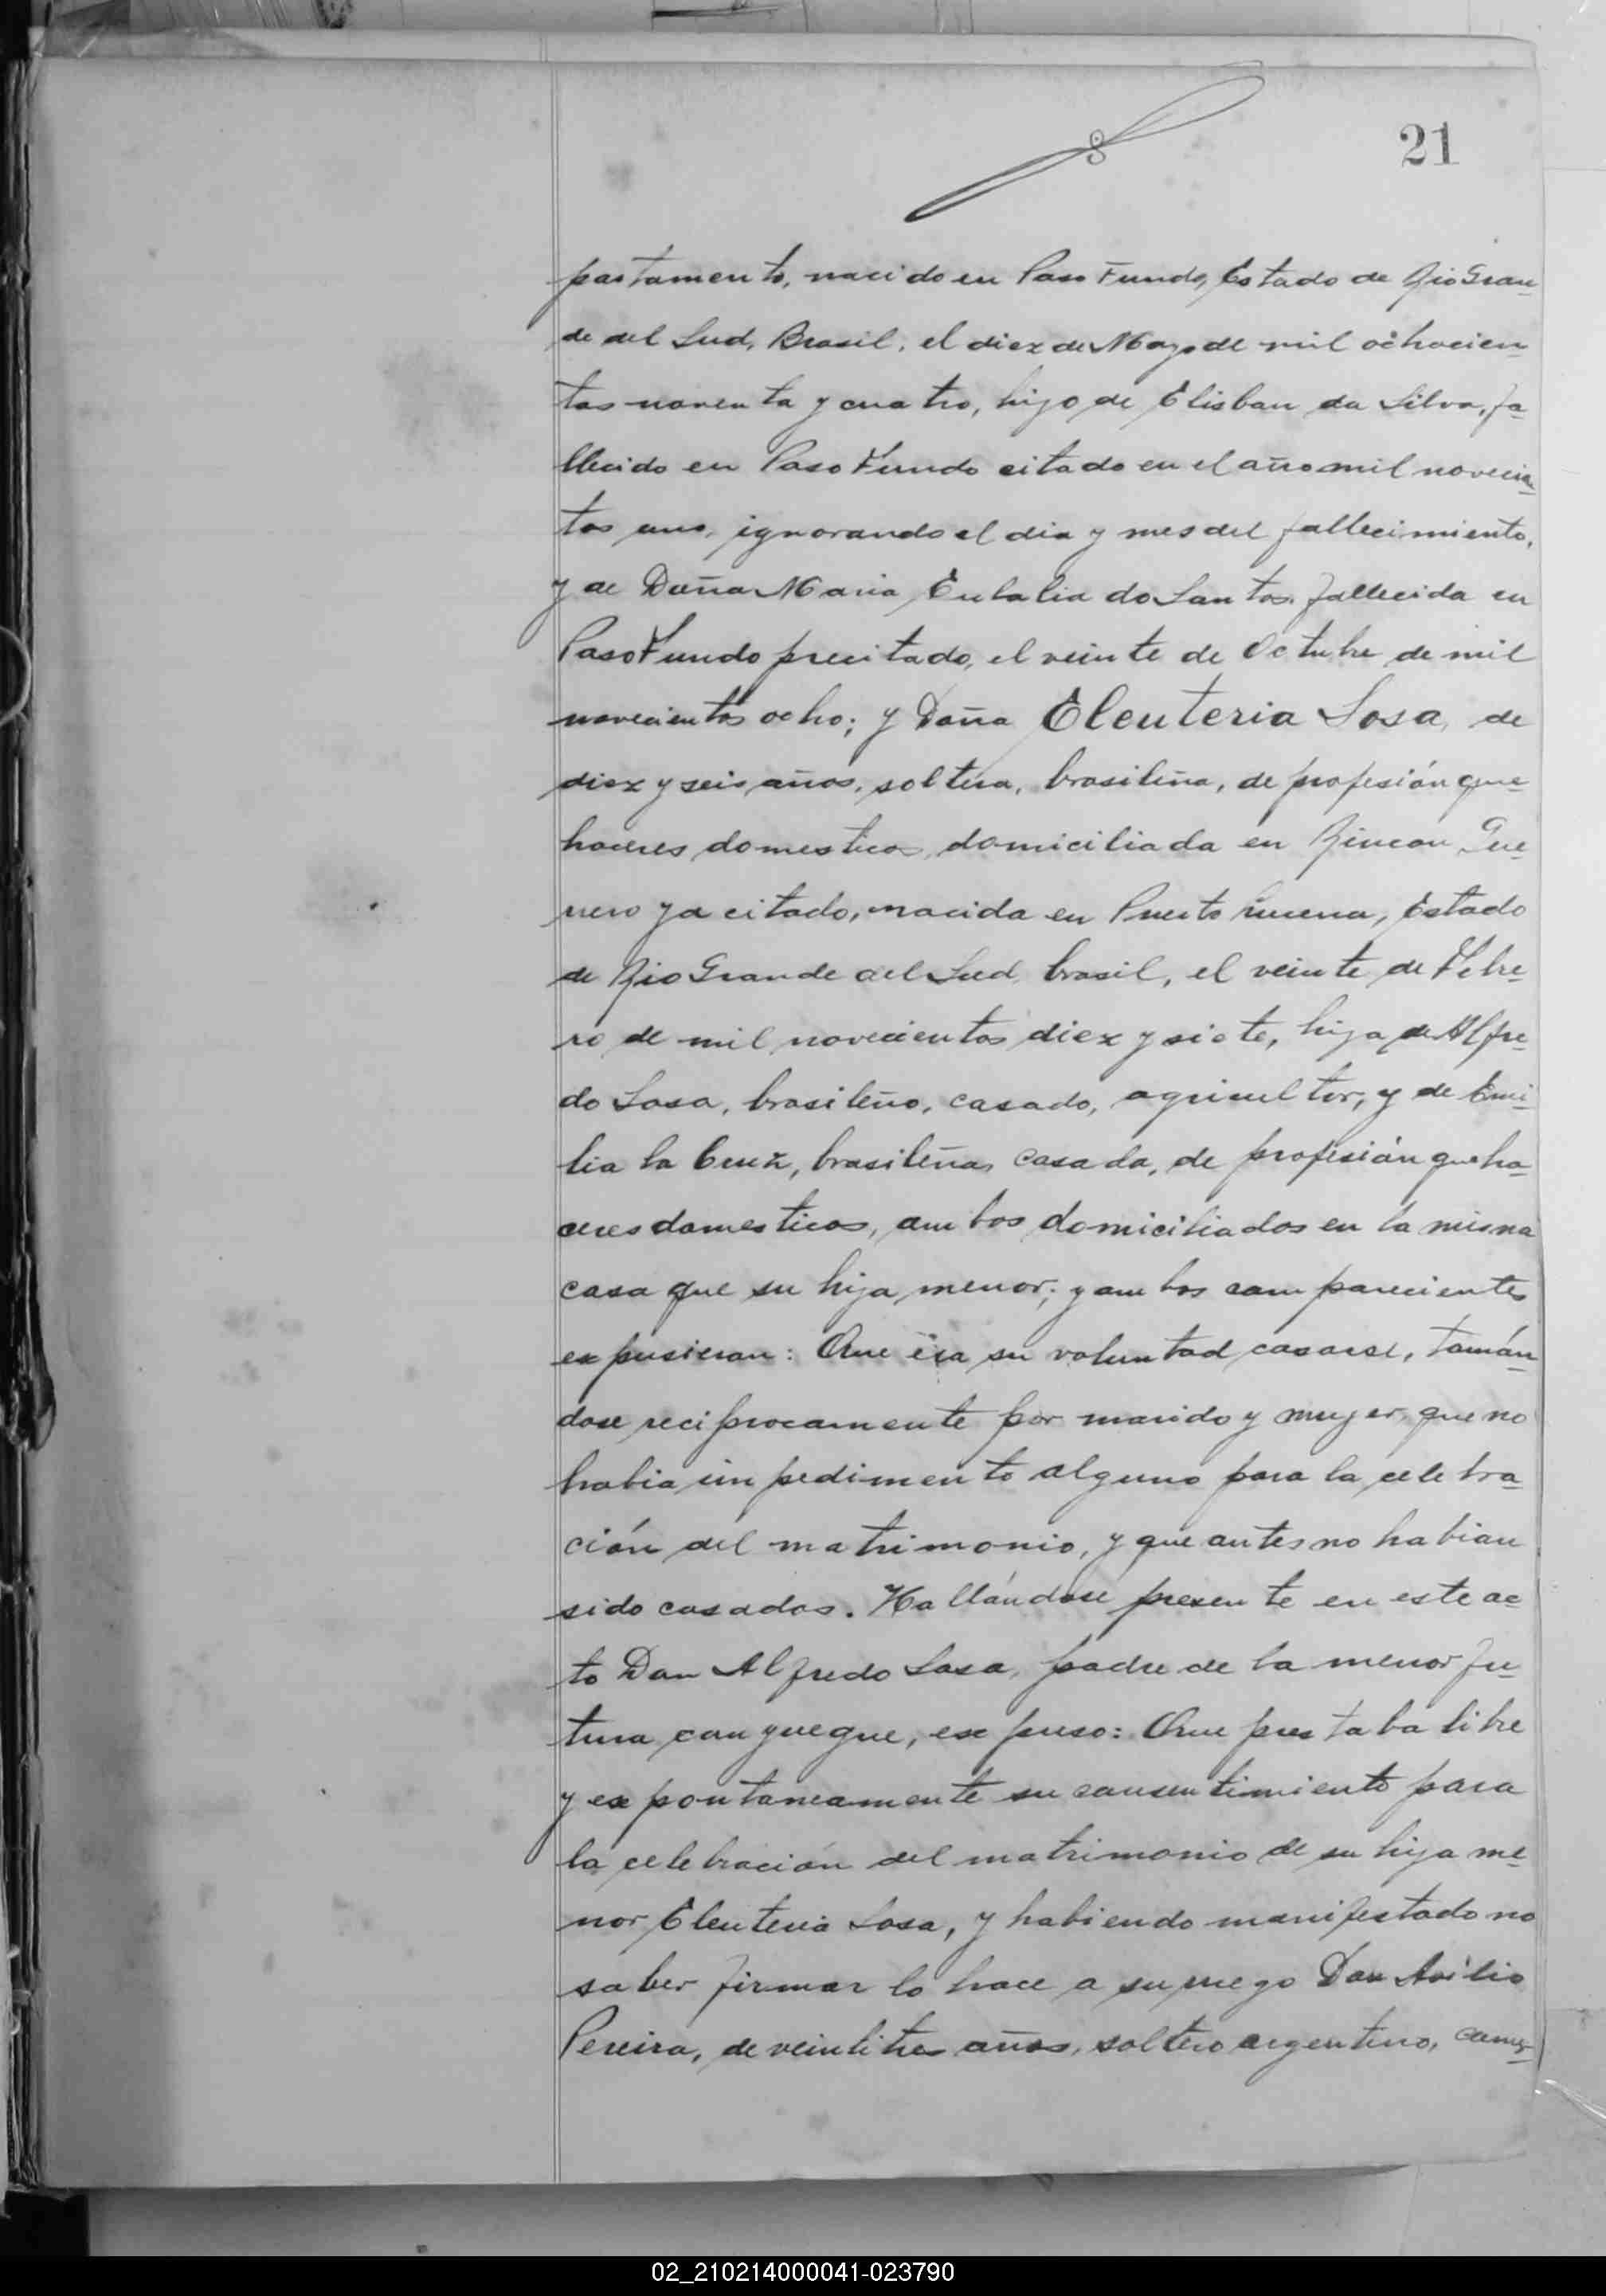 21
partamento, nacido en Paso Fundo, Estado de Rio Gran-
de del Sud, Brasil, el diez de Mayo de mil ochocien-
tos noventa y cuatro, hijo de Elisban da Silva, fa-
llecido en Paso Fundo citado en el año mil novecien-
tos uno, ignorando el dia y mes del fallecimiento,
y de Doña Maria Eulalia do Santos, fallecida en
Paso Fundo precitado, el veinte de Octubre de mil
novecientos ocho; y Doña Eleuteria Sosa, de
diez y seis años, soltera, brasileña, de profesión que-
haceres domesticos, domiciliada en Rincon Gue-
rrero ya citado, nacida en Puerto Lucena, Estado
de Rio Grande del Sud, brasil, el veinte de Febre-
ro de mil novecientos diez y siete, hija de Alfre-
do Sosa, brasileño, casado, agricultor, y de Emi-
lia la Cruz, brasileña, casada, de profesión queha-
ceres domesticos, ambos domiciliados en la misma
casa que su hija menor; y ambos comparecientes
expusieron: Que era su voluntad casarse, tomán-
dose reciprocamente por marido y mujer, que no
habia impedimento alguno para la celebra-
ción del matrimonio, y que antes no habian
sido casados. Hallándose presente en este ac-
to Don Alfredo Sosa, padre de la menor fu-
tura conyuegue, expuso: Que prestaba libre
y expontaneamente su consentimiento para
la celebración del matrimonio de su hija me-
nor Eleuteria Sosa, y habiendo manifestado no
saber firmar lo hace a su ruego Don Avilio
Pereira, de veintitres años, soltero argentino, comer-
02_210214000041-023790